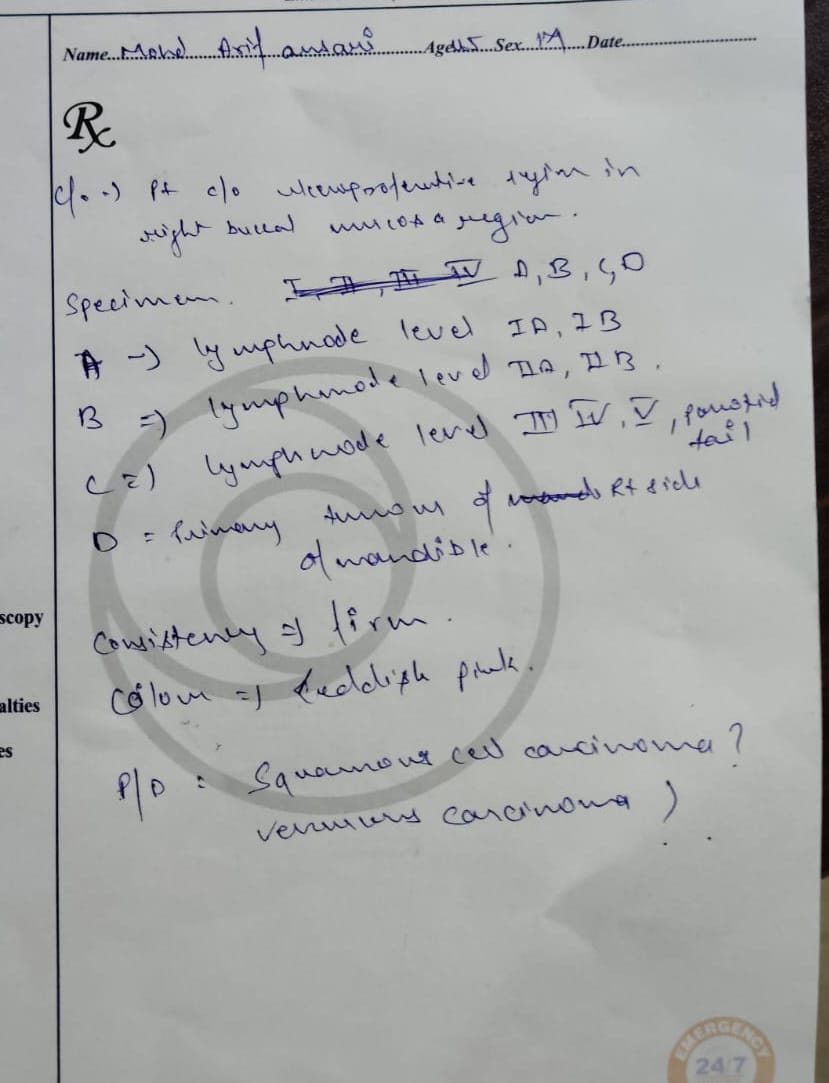 Name...Mohd Arif ansari...Age...45...Sex...M...Date...
Rx
C/o -> Pt c/o ulceroproferative region in
right buccal mucosa region.
Specimen. I, II, III IV A, B, C, D
A -> lymphnode level IA, IB
B => lymphnode level IIA, IIB.
C => lymphnode level III IV, V, parotid
tail
D = Primary tumour of Rt side
of mandible.
Consistency => firm.
Colour => Reddish pink.
P/D : Squamous cell carcinoma?
verrucous carcinoma )
scopy
alties
es
EMERGENCY
24/7